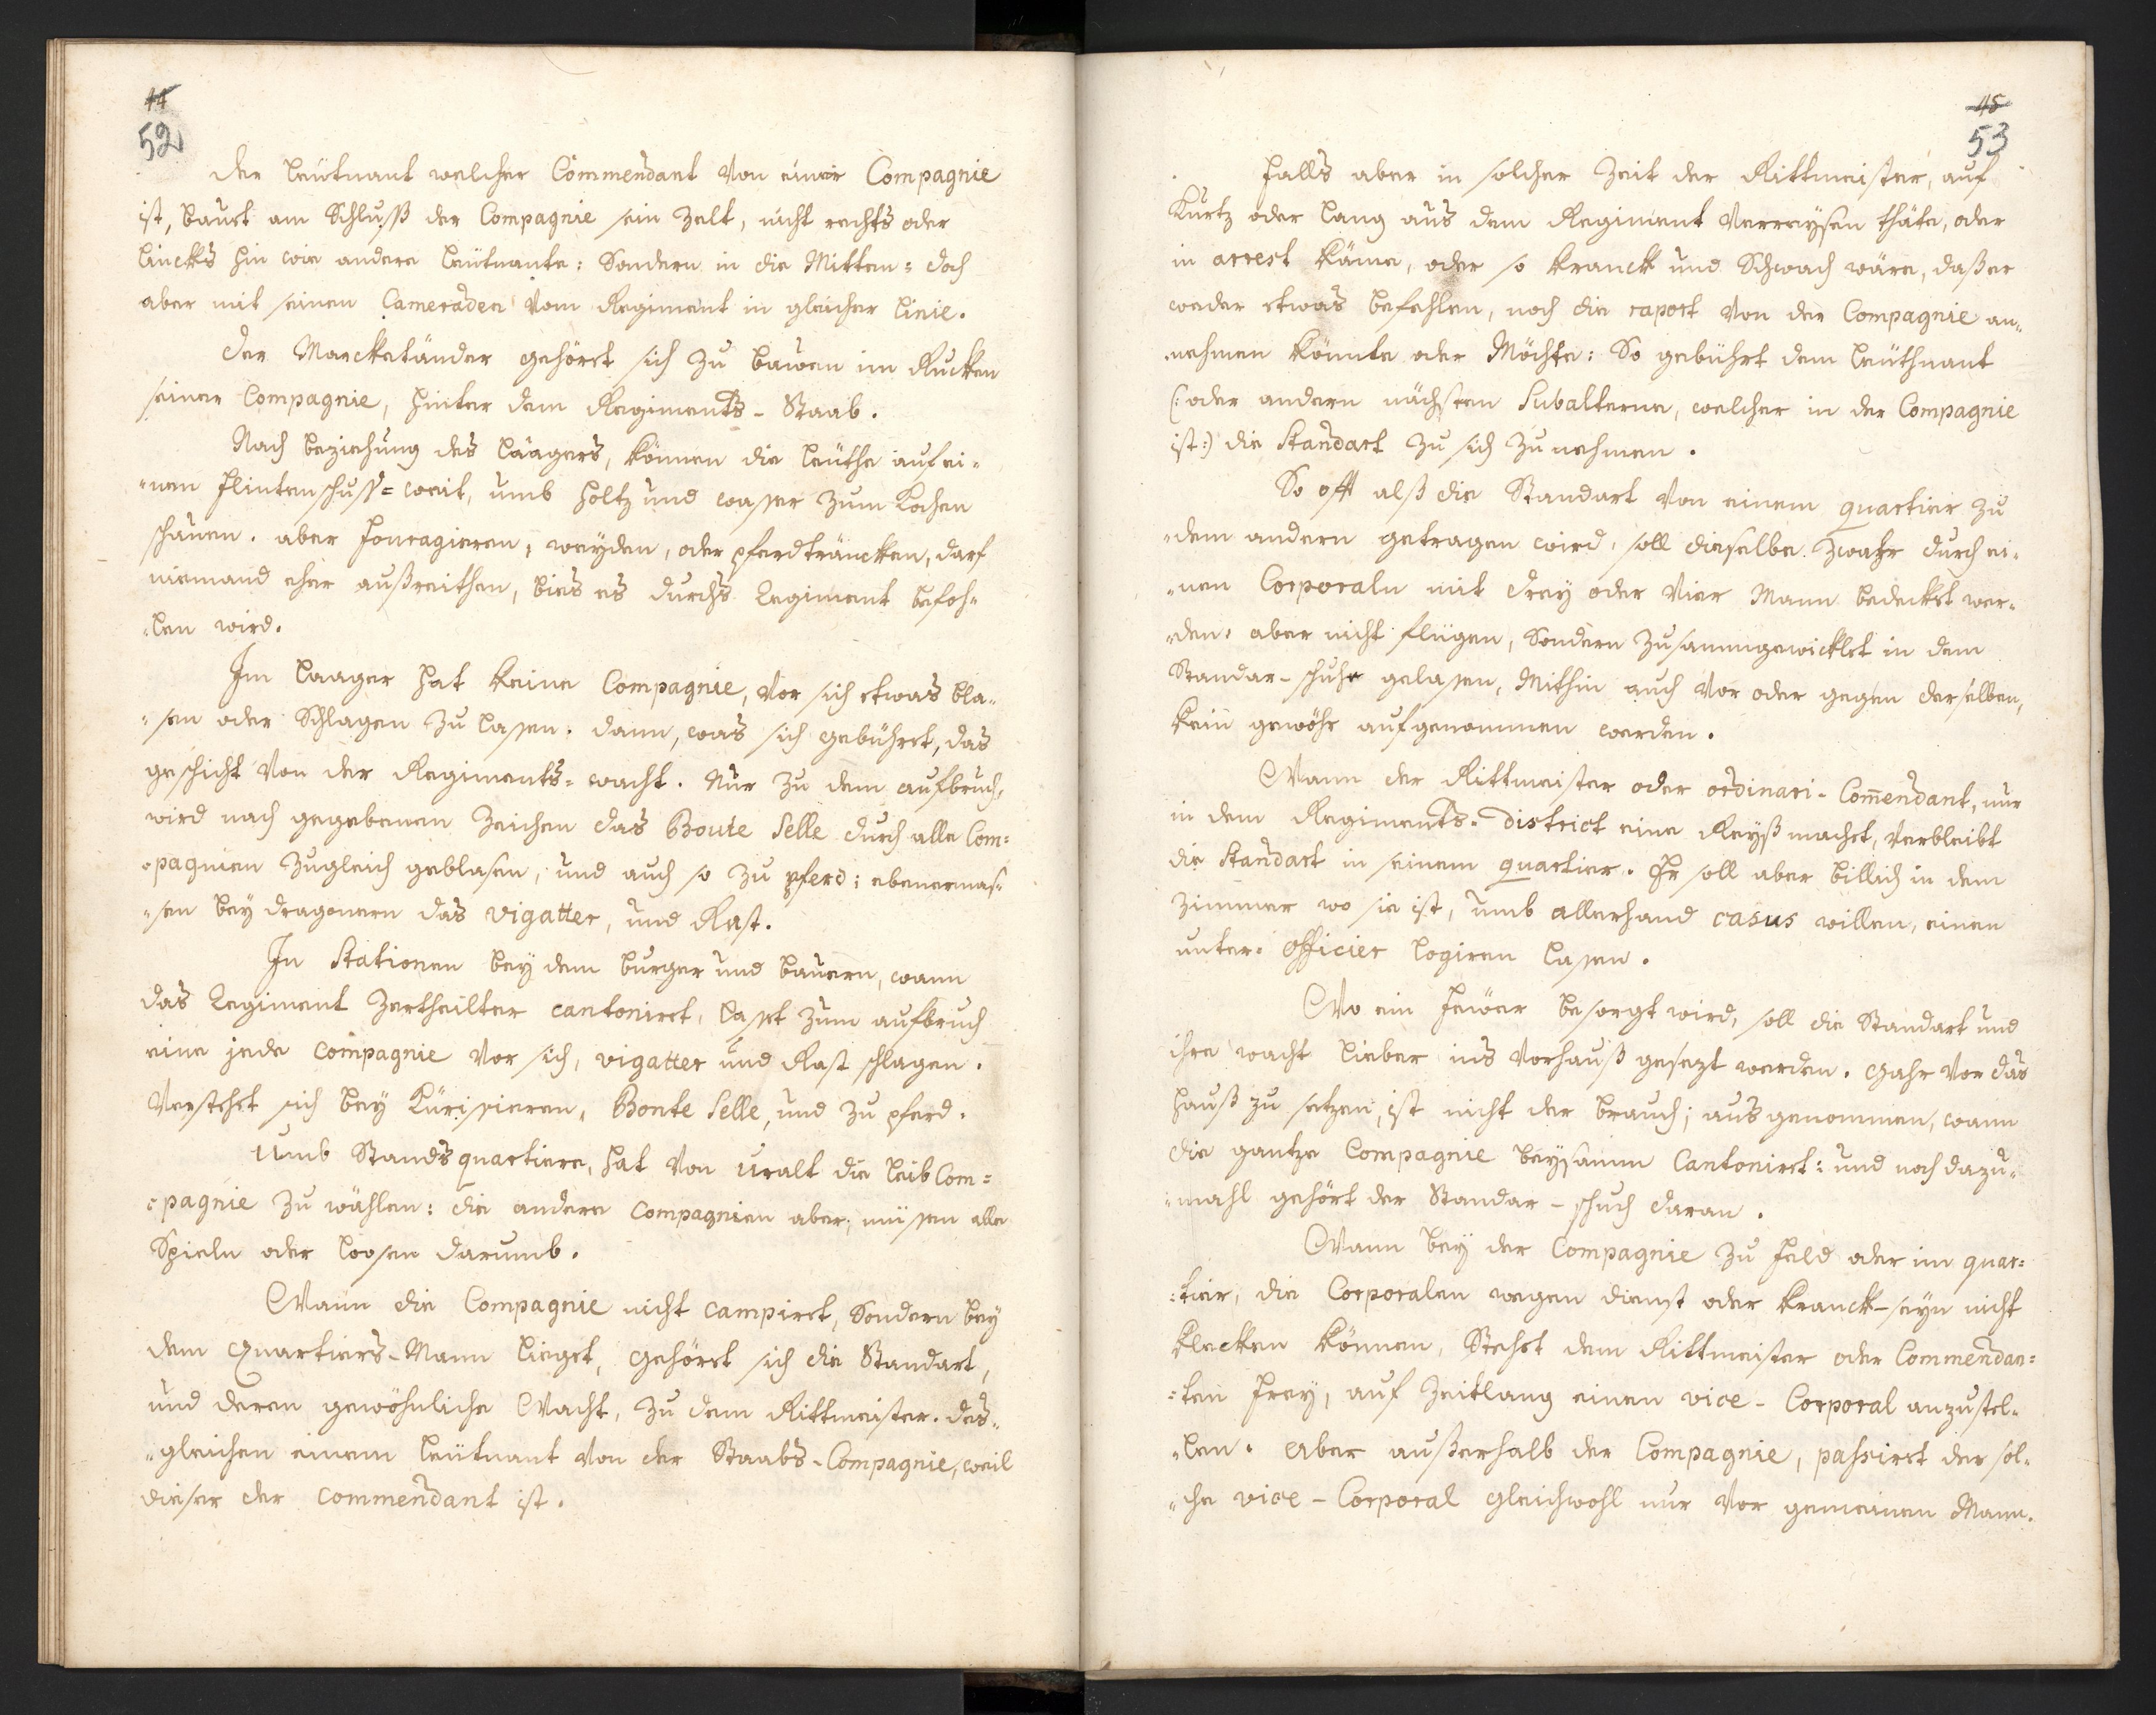 44
52
Der Leutnant welcher Commendant von einer Compagnie
ist, bauet am Schluß der Compagnie sein Zelt, nicht rechts oder
lincks hin wie andere Leutnante: Sondern in die Mitten: doch
aber mit seinen Cameraden vom Regiment in gleicher Linie.
Der Marcketänder gehöret sich zu bauen im Rucken
seiner Compagnie, hinter dem Regiments-Staab.
Nach beziehung des Läägers, können die Leuthe auf ei-
-nen Flintenschuss=weit, umb Holtz und wasser zum Kochen
schauen. aber Fouragieren, weyden, oder pferdträncken, darf
niemand eher außreithen, bies es durchs Regiment befoh-
-len wird.
Im Laager hat keine Compagnie, vor sich etwas bla-
-sen oder Schlagen zu lassen. dann, was sich gebühret, das
geschicht von der Regiments=wacht. Nur zu dem aufbruch,
wird nach gegebenen Zeichen das Boute Selle durch alle Com=
-pagnien zugleich geblasen, und auch so zu pferd; ebenermas-
-sen bey dragonern das vigatter, und Rast.
In Stationen bey dem burger und bauern, wann
das Regiment zertheilter cantoniret, lasset zum aufbruch
eine jede Compagnie vor sich, vigatter und Rast schlagen.
Verstehet sich bey Kürissieren, Boute Selle, und zu pferd.
Umb Standsquartiere, hat von uralt die Leib Com=
=pagnie zu wählen: die andere Compagnien aber, müssen alle
Spieln oder loosen darumb.
Wann die Compagnie nicht campiret, Sondern bey
dem Quartiers-Mann lieget, gehöret sich die Standart,
und deren gewöhnliche Wacht, zu dem Rittmeister. des-
-gleichen einem Leutnant von der Staabs-Compagnie, weil
dieser der Commendant ist.
45
53
Falls aber in solcher Zeit der Rittmeister, auf
Kurtz oder lang aus dem Regiment verreysen thäte, oder
in arrest käme, oder so kranck und Schwach wäre, daßer
weder etwas befehlen, noch die raport von der Compagnie an-
-nehmen könnte oder Möchte: So gebührt dem Leuthnant
(: oder andern nächsten Subalterne, welcher in der Compagnie
ist:) die Standart zu sich zu nehmen.
So offt alß die Standart von einem quartier zu
-dem andern getragen wird, soll dieselbe zwahr durch ei-
-nen Corporaln mit drey oder vier Mann bedecket wer-
-den. aber nicht flügen, Sondern zusammgewicklet in dem
Standar-schuhe gelassen, Mithin auch vor oder gegen derselben,
kein gewöhr aufgenommen werden.
Wann der Rittmeister oder ordinari-Com̄endant, nur
in dem Regiments-District eine Reyß machet, verbleibt
die Standart in seinem quartier. Er soll aber billich in dem
Zimmer wo sie ist, umb allerhand casus willen, einen
unter-Officier logiren lassen.
Wo ein Feüer besorgt wird, soll die Standart und
ihre wacht lieber ins Vorhauß gesezt werden. Gahr vor das
Hauß zu setzen, ist nicht der brauch; ausgenommen, wann
die gantze Compagnie beysamm Cantoniret: und noch dazu-
-mahl gehört der Standar-schuch daran.
Wann bey der Compagnie zu Feld oder im quar=
:tier, die Corporalen wegen dienst oder kranck-seyn nicht
klecken können, Stehet dem Rittmeister oder Commendan=
=ten frey, auf Zeitlang einen vice-Corporal anzustel-
-len. Aber außerhalb der Compagnie, passiret der sol-
-che vice-Corporal gleichwohl nur vor gemeinen Mann.